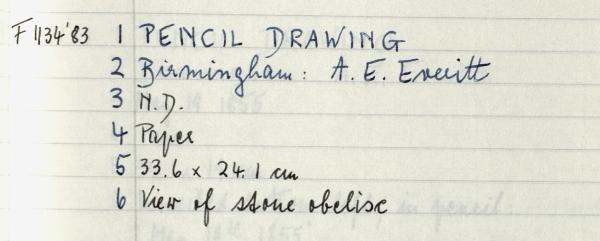 F1134'83 1 PENCIL DRAWING
2 Birmingham: A. E. Everitt
3 N.D.
4 Paper
5 33.6 x 24.1 cm
6 View of stone obelisc